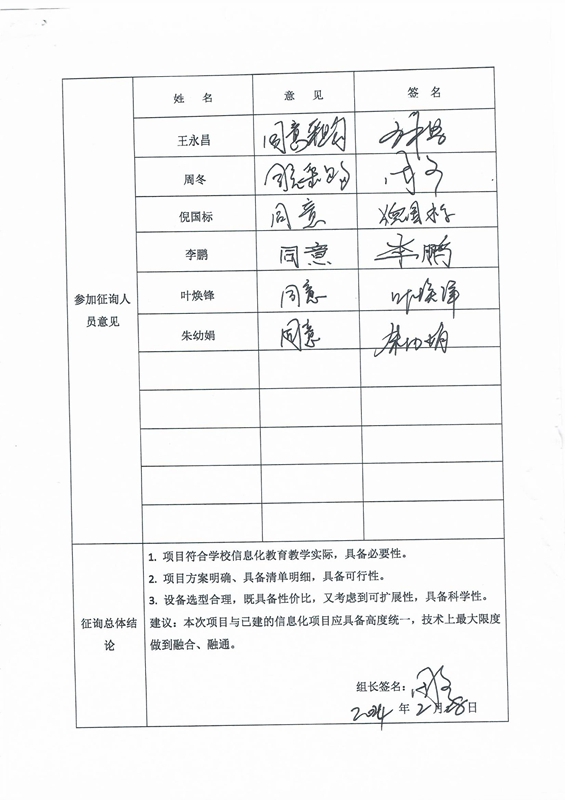 姓 名 意 见 签 名
王永昌 同意
周冬 周冬
倪国标 同意 倪国标
李鹏 同意 李鹏
参加征询人
员意见
叶焕锋 同意 叶焕锋
朱幼娟 同意 朱幼娟
1. 项目符合学校信息化教育教学实际，具备必要性。
2. 项目方案明确、具备清单明细，具备可行性。
3. 设备选型合理，既具备性价比，又考虑到可扩展性，具备科学性。
征询总体结
论
建议：本次项目与已建的信息化项目应具备高度统一，技术上最大限度
做到融合、融通。
组长签名：
2024 年 2 月 28 日